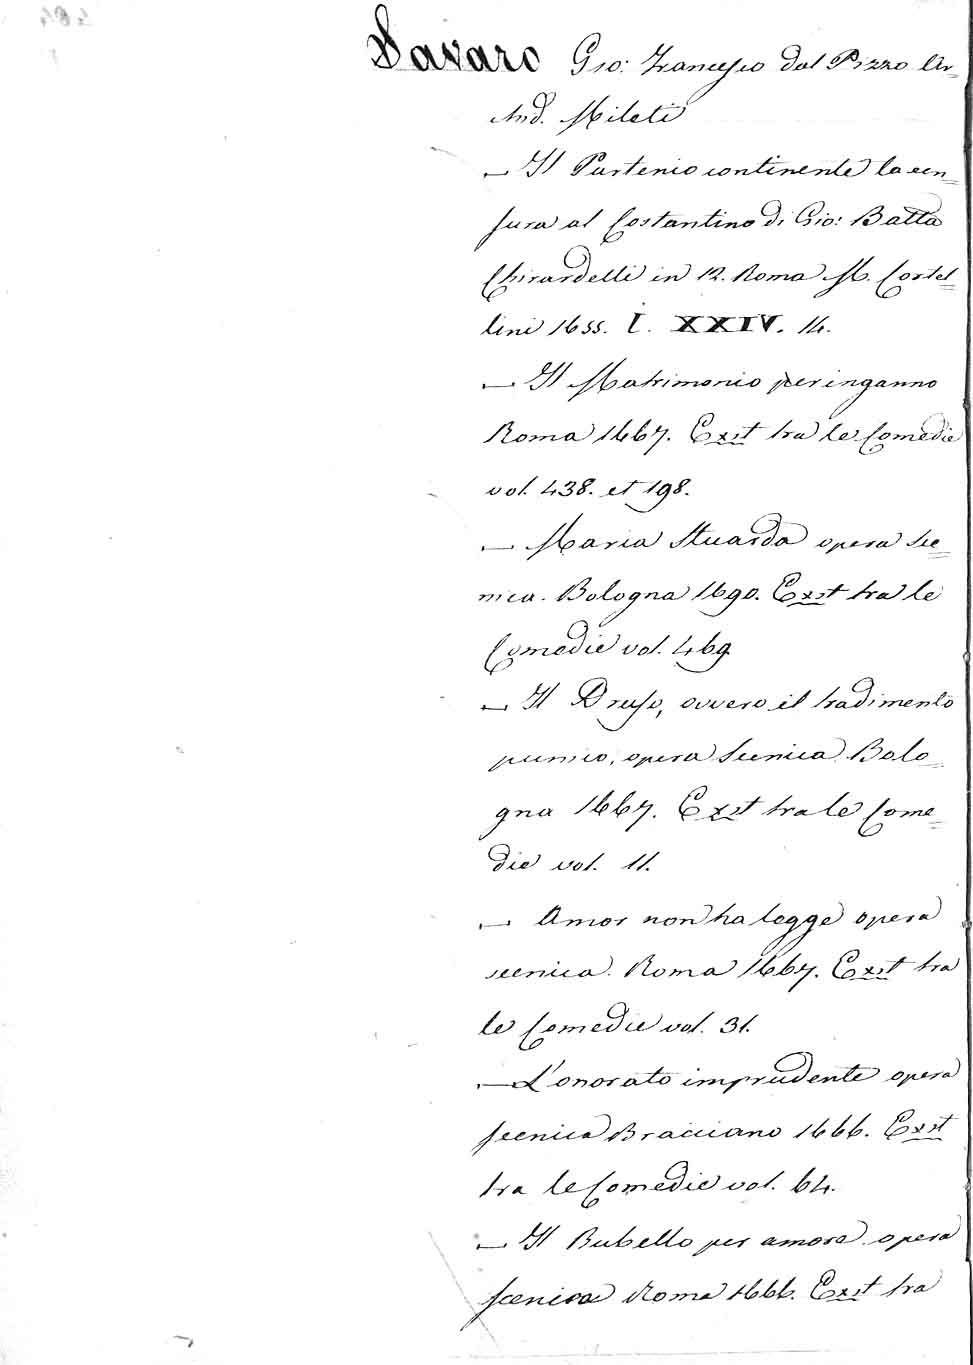 Savaro Gio: Francesco dal Pizzo Ar=
chid. Mileti
— Il Partenio continente la cen=
sura al Costantino di Gio: Batta
Ghirardelli in 12. Roma M. Cortel=
lini 1655. I. XXIV. 14.
— Il Matrimonio per inganno
Roma 1667. Exst tra le Comedie
vol. 438. et 198.
— Maria Stuarda opera Sce=
nica. Bologna 1690. Exst tra le
Comedie vol. 469
— Il Druso, ovvero il tradimento
punico, opera Scenica. Bolo=
gna 1667. Exst tra le Come=
die vol. 11.
— Amor non ha legge opera
scenica. Roma 1667. Exst tra
le Comedie vol. 31.
— L'onorato imprudente opera
scenica Bracciano 1666. Exst
tra le Comedie vol. 64.
— Il Rubello per amore opera
scenica Roma 1666. Exst tra